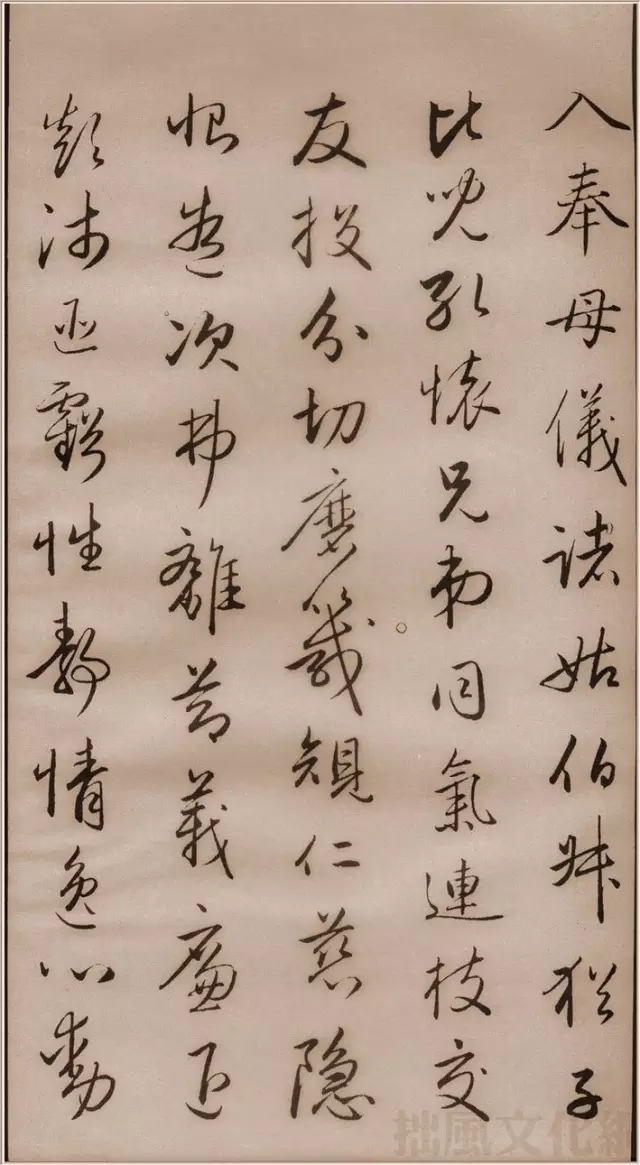 入奉母儀諸姑伯叔猶子
比兒孔懷兄弟同氣連枝交
友投分切磨箴規仁慈隱
惻造次弗離節義廉退
顛沛匪虧性靜情逸心動
拙風文化網